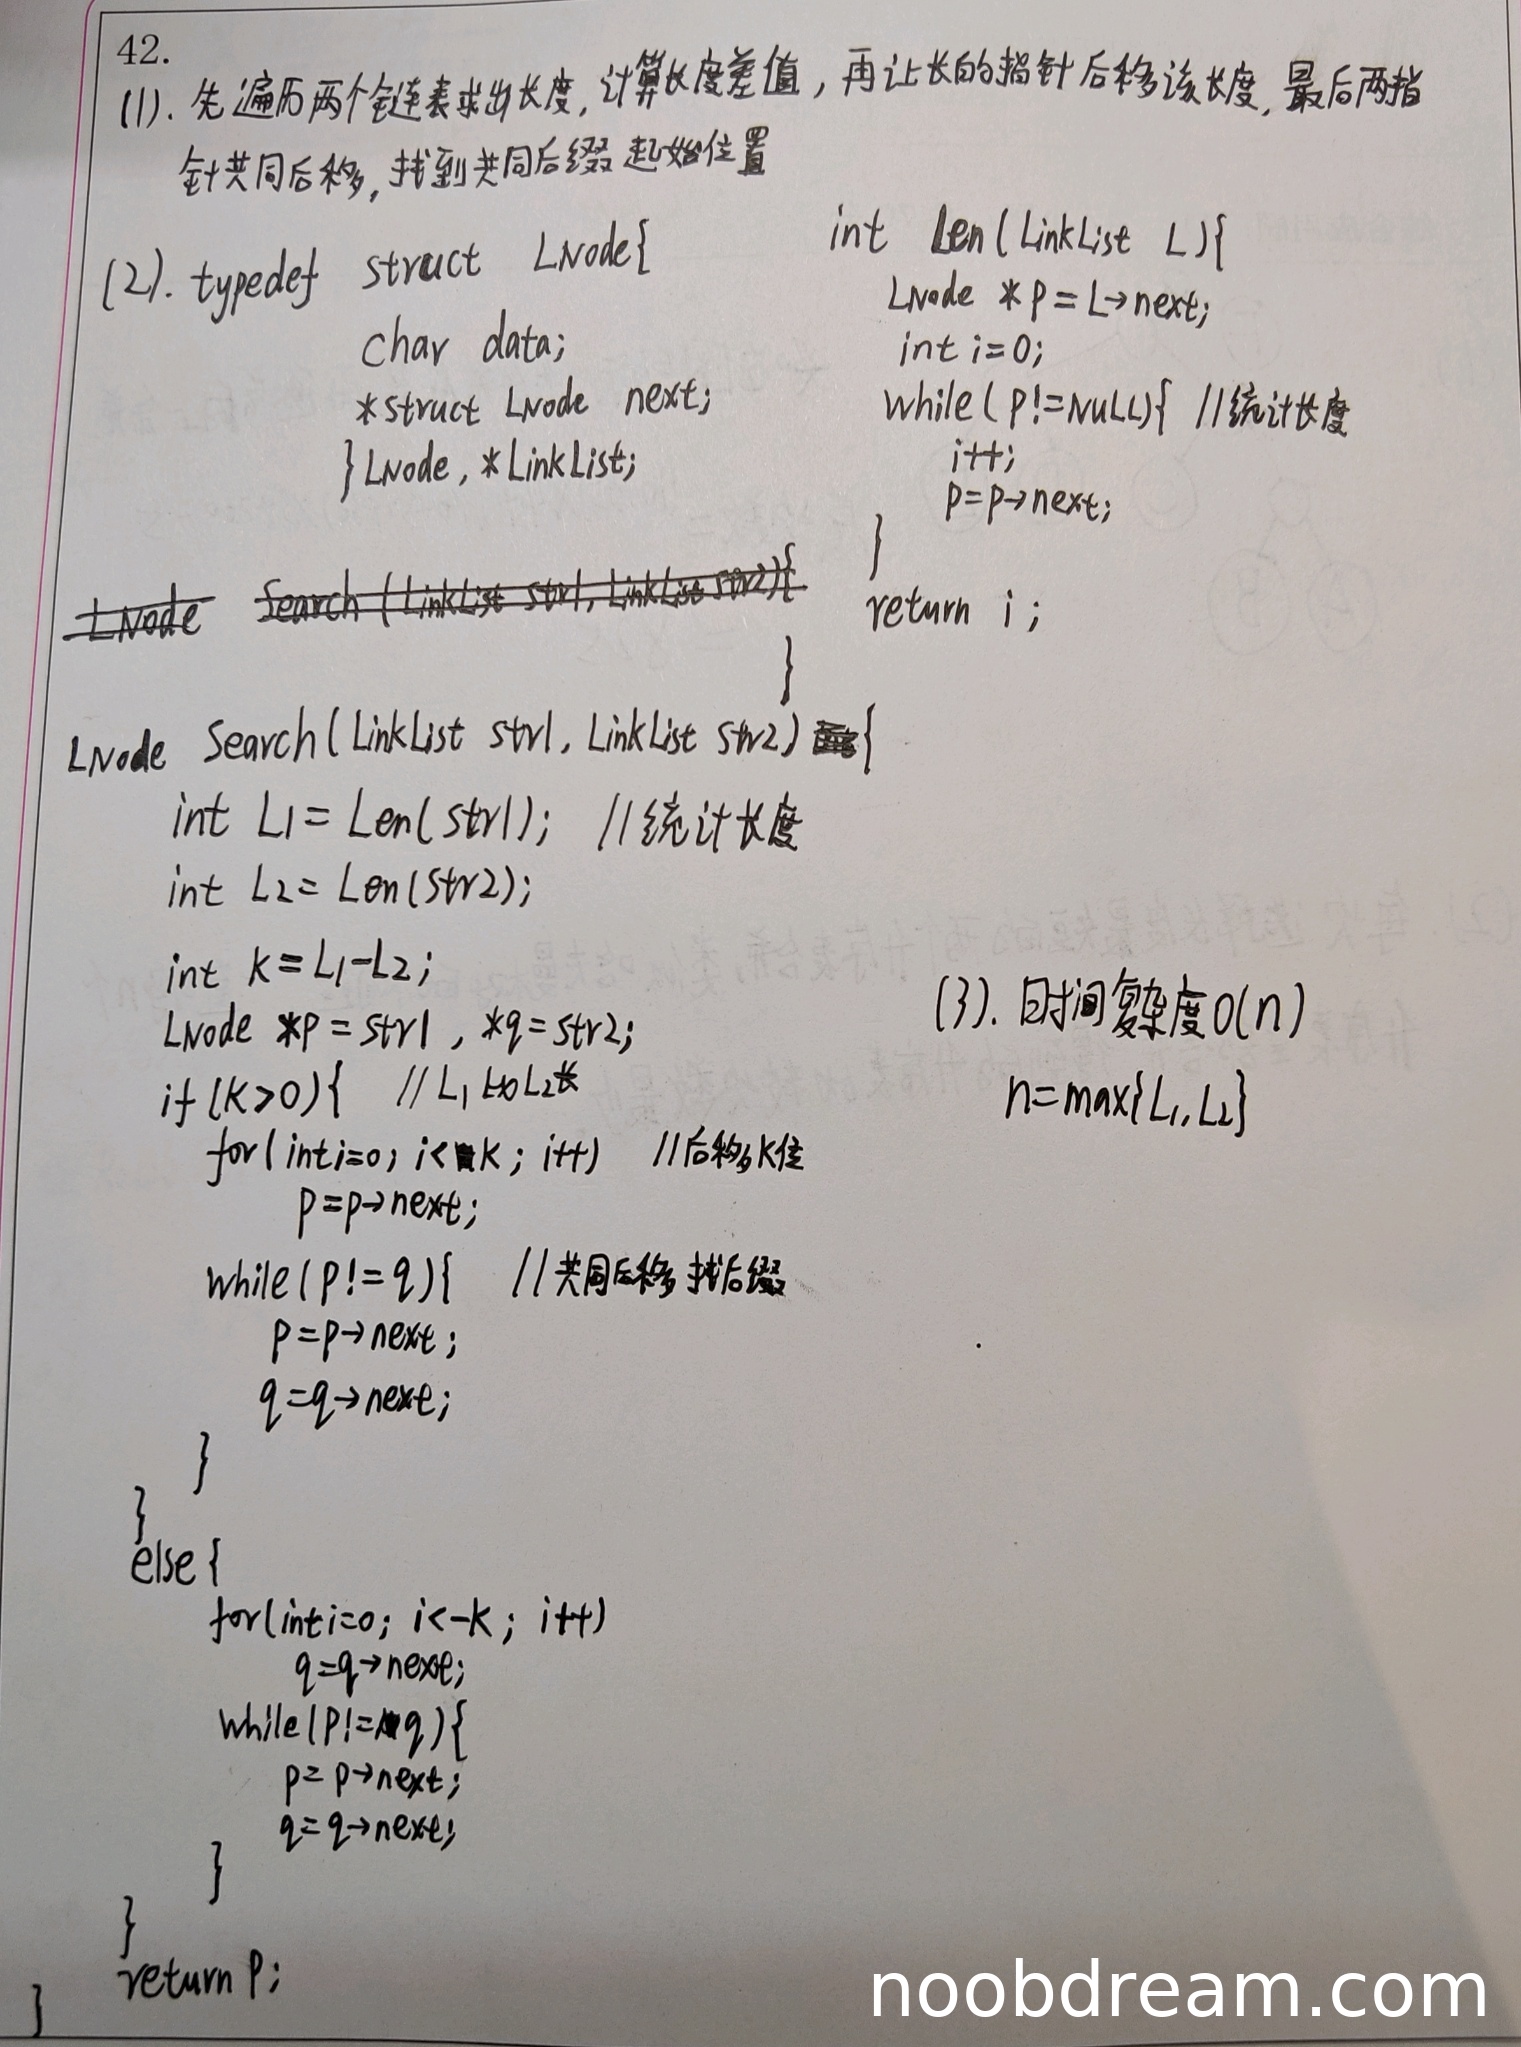 42.
(1). 先遍历两个链表求出长度, 计算长度差值, 再让长的指针后移该长度, 最后两指
针共同后移, 找到共同后缀起始位置
(2). typedef struct LNode{
char data;
*struct LNode next;
}LNode, *LinkList;
LNode Search(LinkList str1, LinkList str2){
int Len(LinkList L){
LNode *p=L->next;
int i=0;
while(p!=NULL){ //统计长度
i++;
p=p->next;
}
return i;
}
LNode Search(LinkList str1, LinkList str2) {
int L1=Len(str1); //统计长度
int L2=Len(str2);
int k=L1-L2;
LNode *p=str1, *q=str2;
if(k>0){ //L1比L2长
for(int i=0; i<k; i++) //后移k位
p=p->next;
while(p!=q){ //共同后移找后缀
p=p->next;
q=q->next;
}
}
else{
for(int i=0; i<-k; i++)
q=q->next;
while(p!=q){
p=p->next;
q=q->next;
}
}
return p;
}
(3). 时间复杂度O(n)
n=max{L1,L2}
noobdream.com